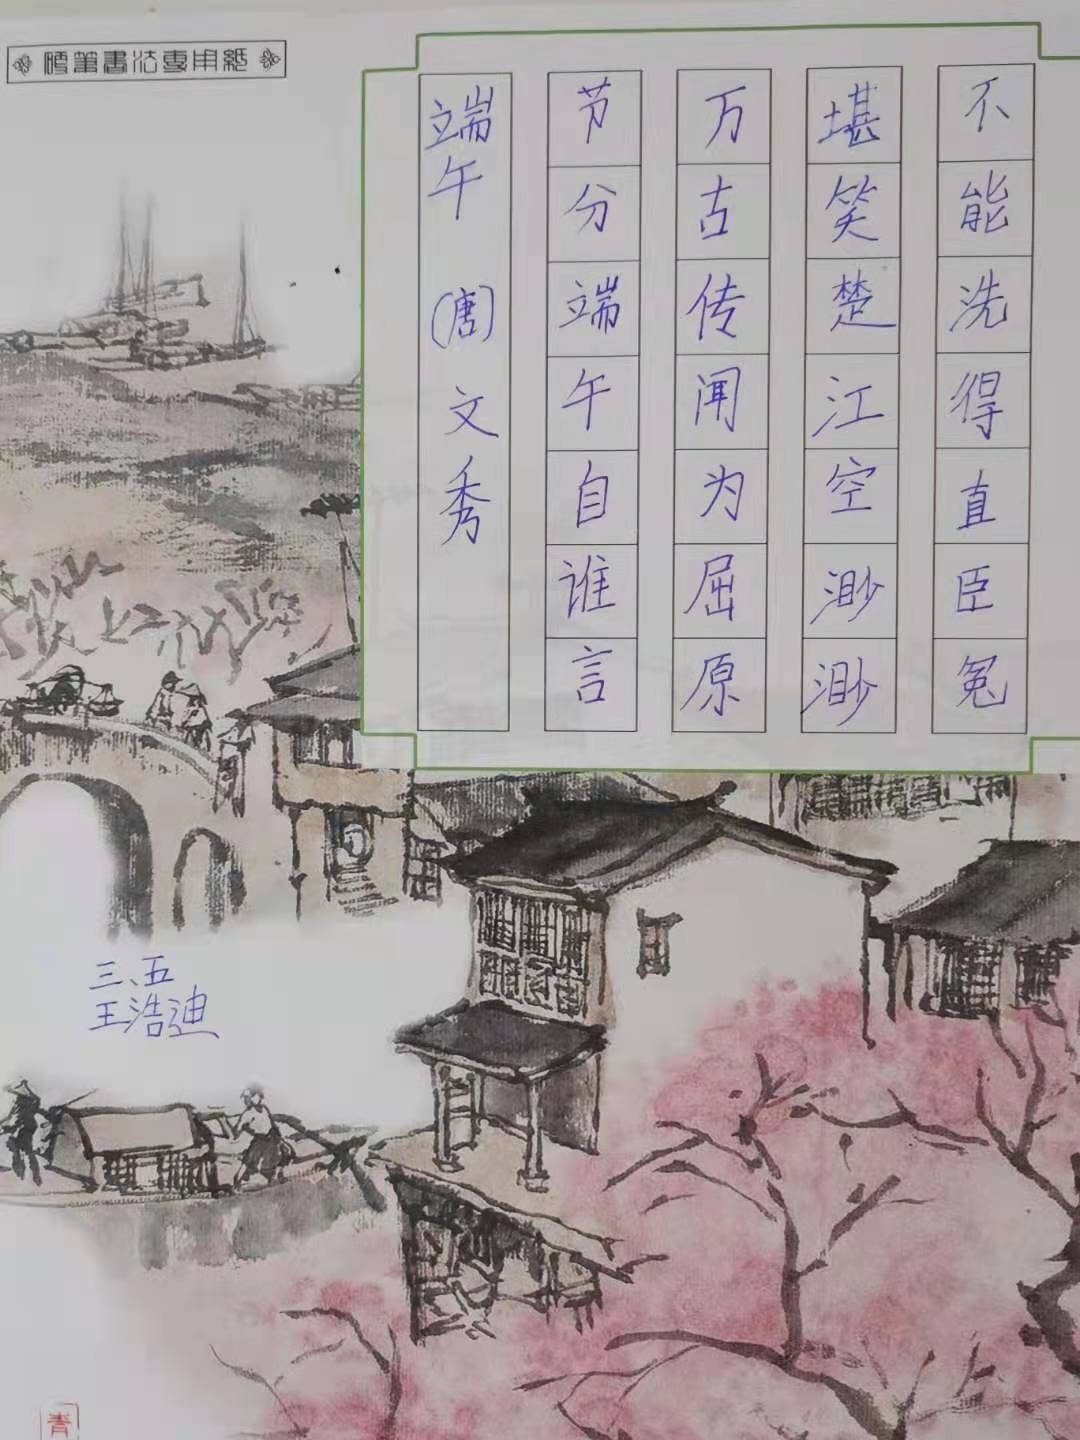 硬筆書法專用紙
端午 (唐) 文秀
节分端午自谁言
万古传闻为屈原
堪笑楚江空渺渺
不能洗得直臣冤
三、五
王浩迪
青